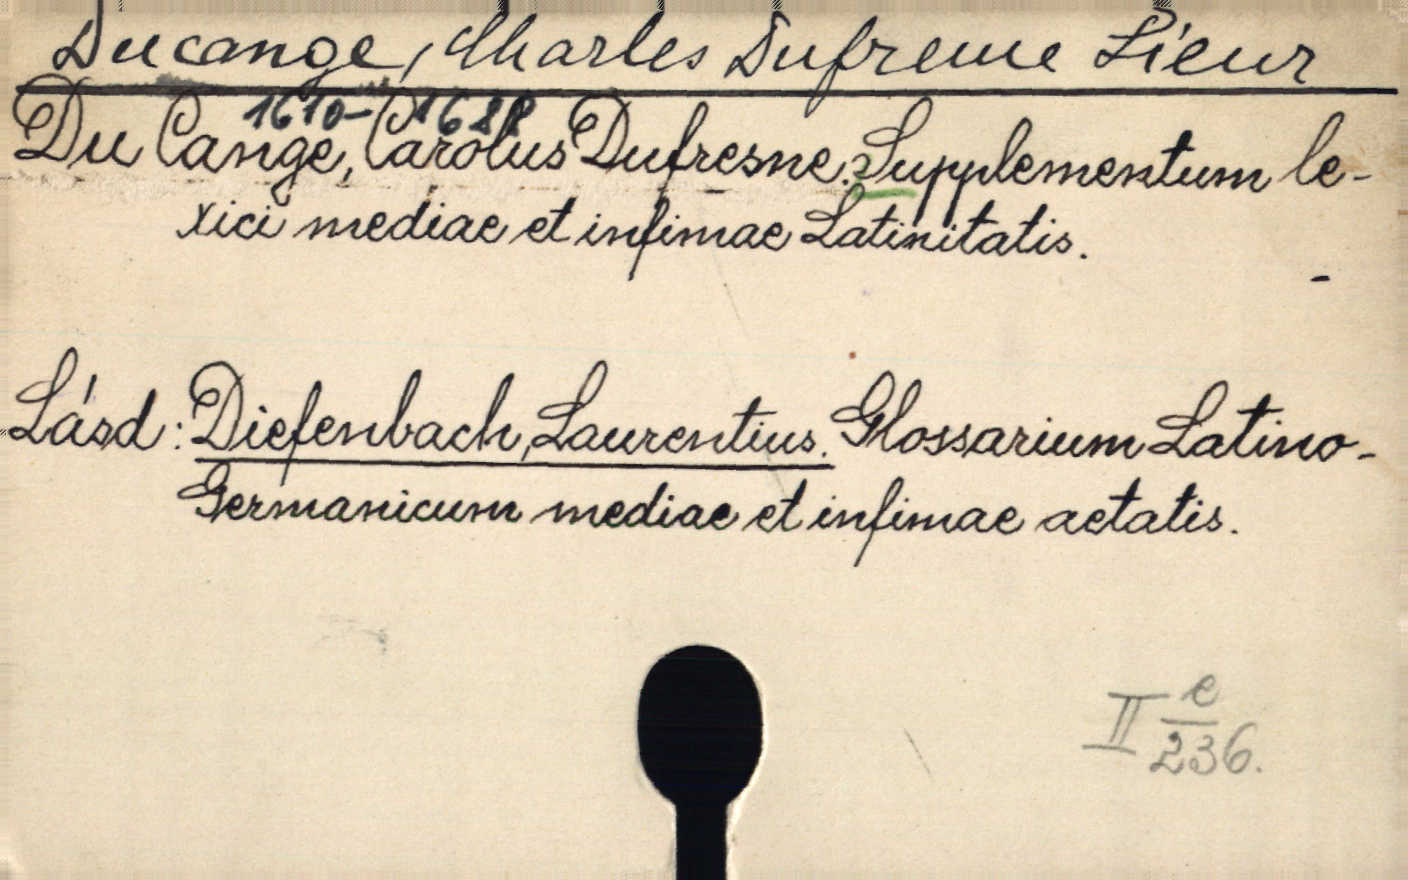 Ducange, Charles Dufreme Sieur
1610-1688
Du Cange, Carolus Dufresne. Supplementum le-
xici mediae et infimae Latinitatis.
Lásd: Diefenbach, Laurentius. Glossarium Latino-
Germanicum mediae et infimae aetatis.
II e
236.